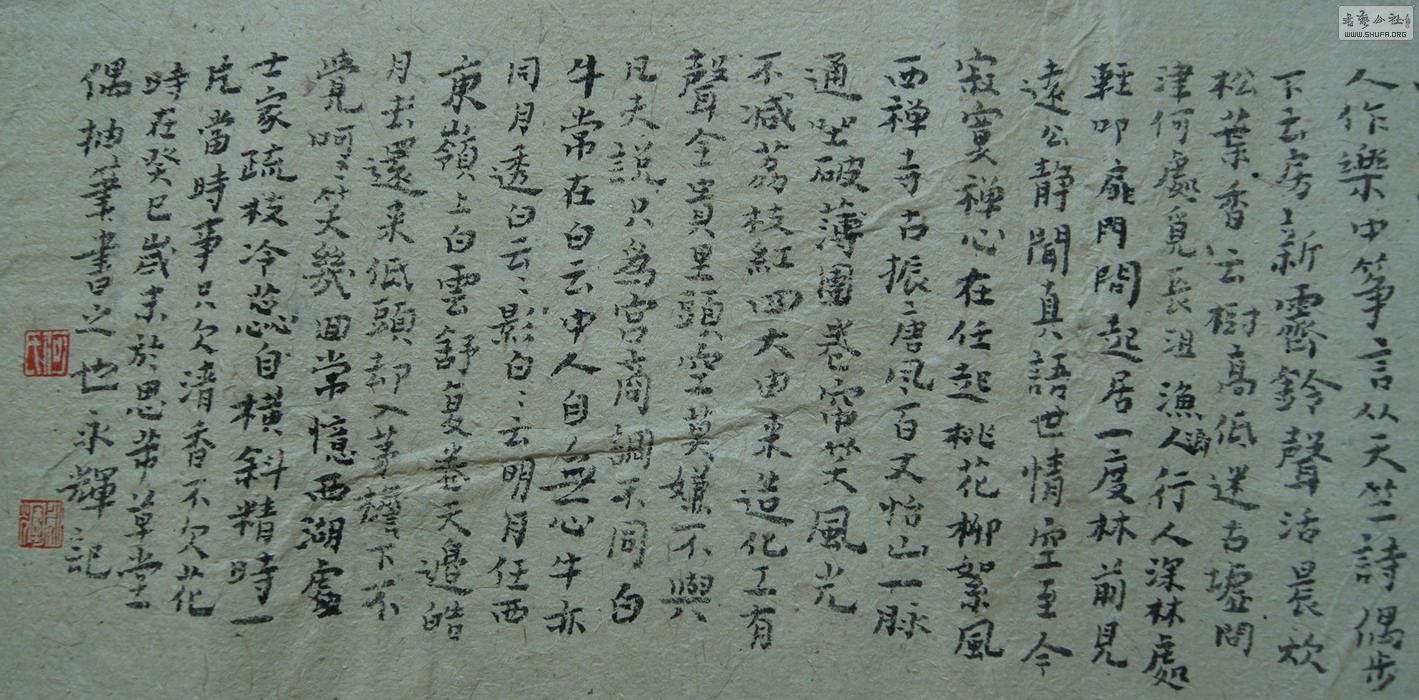 人作樂中箏言从天竺詩偶步
下云房新霽鈴聲活晨炊
松葉香云樹高低迷古墟問
津何處覓長沮漁人行人深林處
輕叩扉門問起居一度林前見
遠公静聞真語世情空至今
寂寞禅心在任起桃花柳絮風
西禅寺古振唐風百丈怡山一脉
通坐破蒲團卷帘笑風光
不减荔枝紅四大由来造化工有
聲全貴里頭空莫嫌不與
凡夫說只為宮商調不同白
牛常在白云中人自無心牛亦
同月透白云云影白白云明月任西
東嶺上白雲舒复卷天邊皓
月去還来低頭却入茅檐下不
覺呵呵笑幾回常憶西湖處
士家疏枝冷蕊自橫斜精時一
片當時事只欠清香不欠花
時在癸巳歲末於思芾草堂
偶抽筆書之也永輝記
書藝公社
WWW.SHUFA.ORG